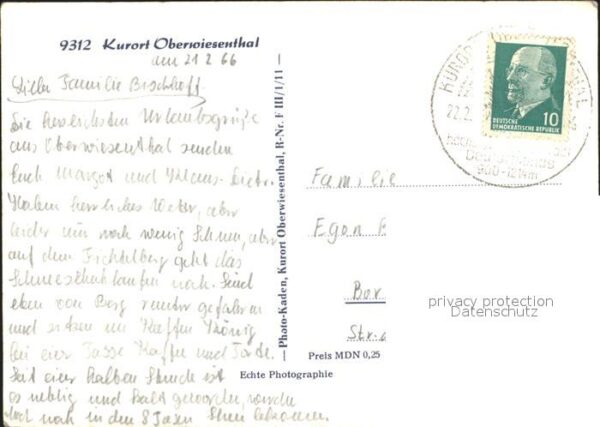 9312 Kurort Oberwiesenthal
am 21 2 66
Familie Bischhoff.
Die herzlichsten Urlaubsgrüße
aus Oberwiesenthal senden
Euch Margot und Klaus-Dieter.
Haben herrliches Wetter, aber
leider nur noch wenig Schnee, aber
auf dem Fichtelberg geht das
Schneeschuhlaufen noch. Sind
eben von Berg runter gefahren
und sitzen im Kaffee König
bei einer Tasse Kaffee und Torte.
Seit einer halben Stunde ist
es neblig und kalt geworden, werden
doch noch in den 8 Tagen Schnee bekommen.
Photo-Kaden, Kurort Oberwiesenthal, R-Nr. F III/1/11
Echte Photographie
Preis MDN 0,25
DEUTSCHE
DEMOKRATISCHE REPUBLIK
10
KURORT
22.2.
900-1214m
Familie
Egon
Bor
Str.
privacy protection
Datenschutz